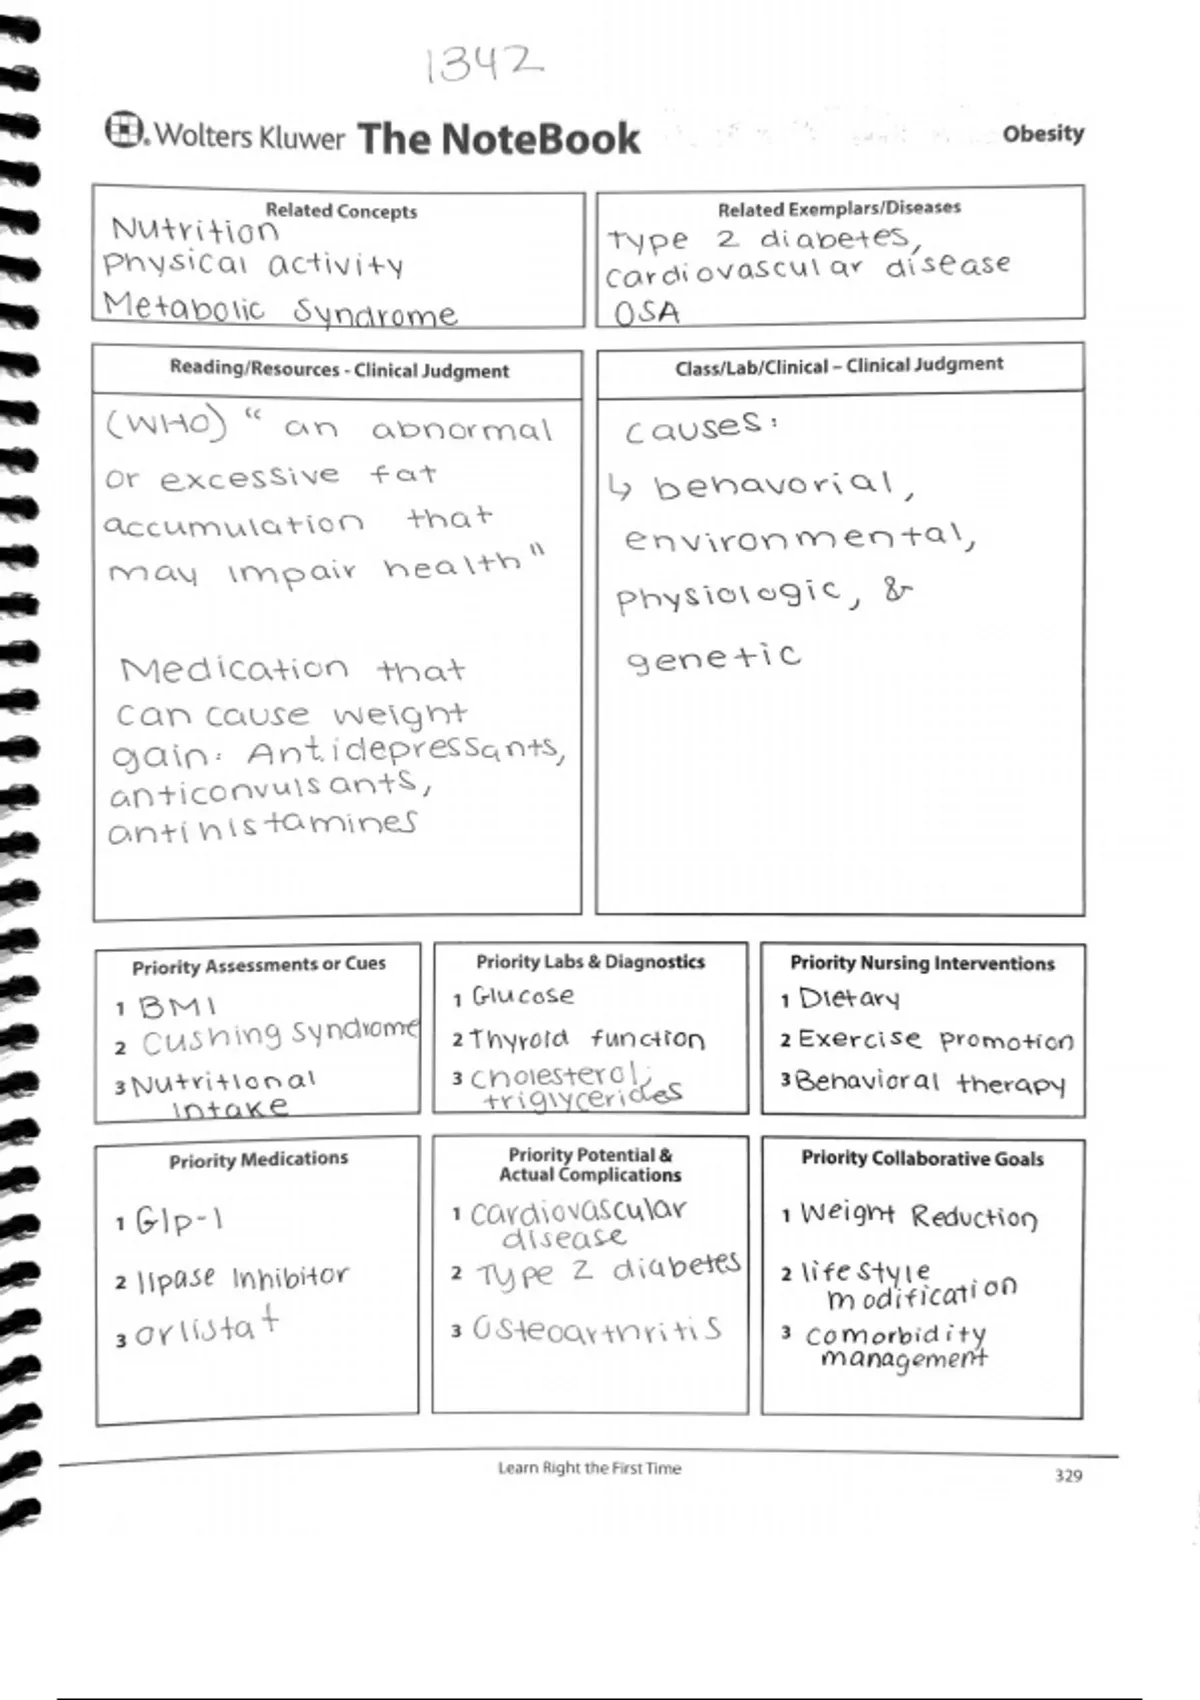 1342
Wolters Kluwer The NoteBook
Obesity
Related Concepts
Nutrition
Physical activity
Metabolic Syndrome
Related Exemplars/Diseases
Type 2 diabetes,
cardiovascular disease
OSA
Reading/Resources - Clinical Judgment
(WHO) " an abnormal
or excessive fat
accumulation that
may impair health"
Medication that
can cause weight
gain: Antidepressants,
anticonvulsants,
antihistamines
Class/Lab/Clinical – Clinical Judgment
causes:
↳ behavorial,
environmental,
physiologic, &
genetic
Priority Assessments or Cues
1 BMI
2 Cushing syndrome
3 Nutritional
intake
Priority Labs & Diagnostics
1 Glucose
2 Thyroid function
3 cholesterol,
triglycerides
Priority Nursing Interventions
1 Dietary
2 Exercise promotion
3 Behavioral therapy
Priority Medications
1 Glp-1
2 lipase Inhibitor
3 orlistat
Priority Potential &
Actual Complications
1 cardiovascular
disease
2 Type 2 diabetes
3 Osteoarthritis
Priority Collaborative Goals
1 Weight Reduction
2 lifestyle
modification
3 comorbidity
management
Learn Right the First Time
329